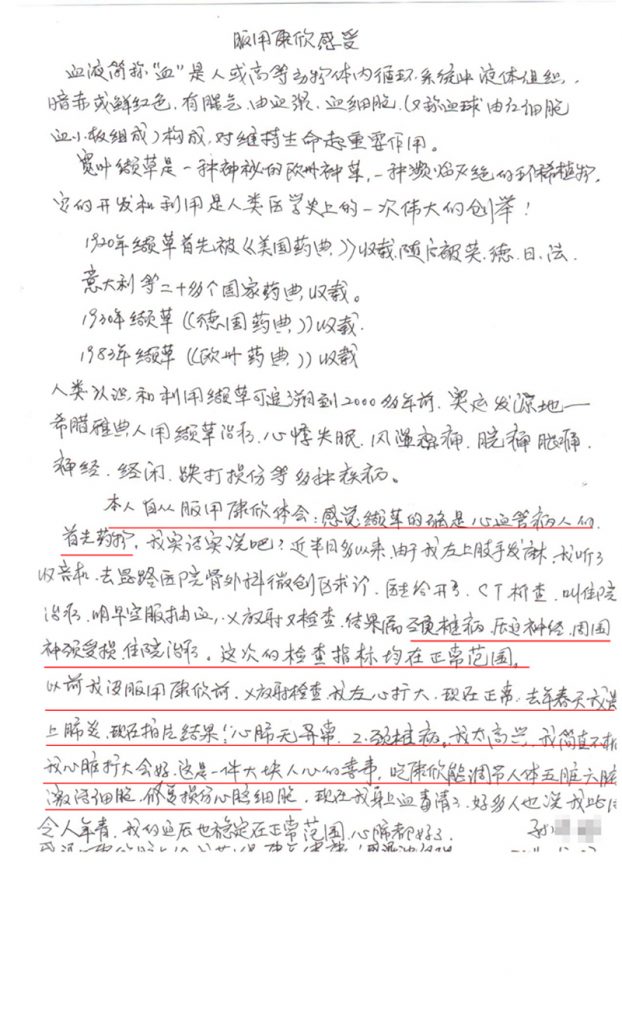 服用康欣感受
血液简称“血”是人或高等动物体内循环系统中液体组织,
暗赤或鲜红色,有腥气,由血浆、血细胞(又称血球由红细胞
血小板组成)构成,对维持生命起重要作用。
宽叶缬草是一种神秘的欧州神草,一种濒焰灭绝的珍稀植物,
它的开发和利用是人类医学史上的一次伟大的创举!
1920年缬草首先被《美国药典》收载,随后被英、德、日、法、
意大利等二十多个国家药典收载。
1930年缬草《德国药典》收载.
1983年缬草《欧州药典》收载
人类认识和利用缬草可追溯到2000多年前.奥运发源地—
希腊雅典人用缬草治疗,心悸失眠、风湿痹痛、脘痛腹痛、
神经、经闭、跌打损伤等多种疾病。
本人自从服用康欣体会:感觉缬草的确是心血管病人的
首先药物,我实话实说吧?近半月多以来,由于我左上肢手发麻,我听了
收音机,去 医院骨外科微创区求诊,医生给开了,CT检查,叫住院
治疗,明早空服抽血,X放射又检查,结果属颈椎病,压迫神经,周围
神颈受损,住院治疗。这次的检查指标均在正常范围,
以前我没服用康欣前,X放射检查,我左心扩大,现在正常.去年春天我患
上肺炎,现在拍片结果:1.心肺无异常 2.颈椎病。我太高兴,我简直不相
我心脏扩大会好.这是一件大块人心的喜事,吃康欣能调节人体五脏六腑
激活细胞,修复损伤心脏细胞,现在我身上血毒清了,好多人也说我比
令人年青,我的血压也稳定在正常范围,心脏都好了.